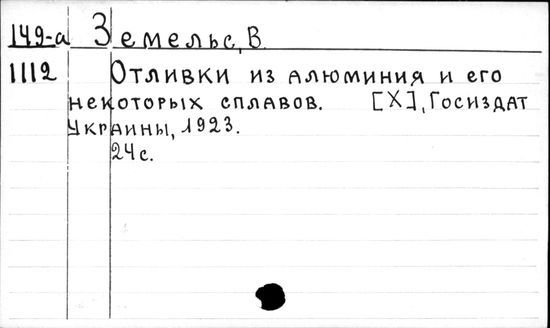 149-а Земельс, В.
1112 Отливки из алюминия и его
некоторых сплавов. [Х], Госиздат
Украины, 1923.
24 с.